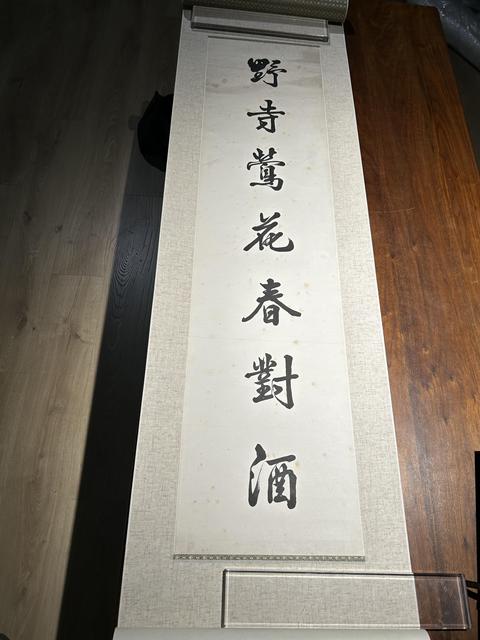 野寺鶯花春對酒